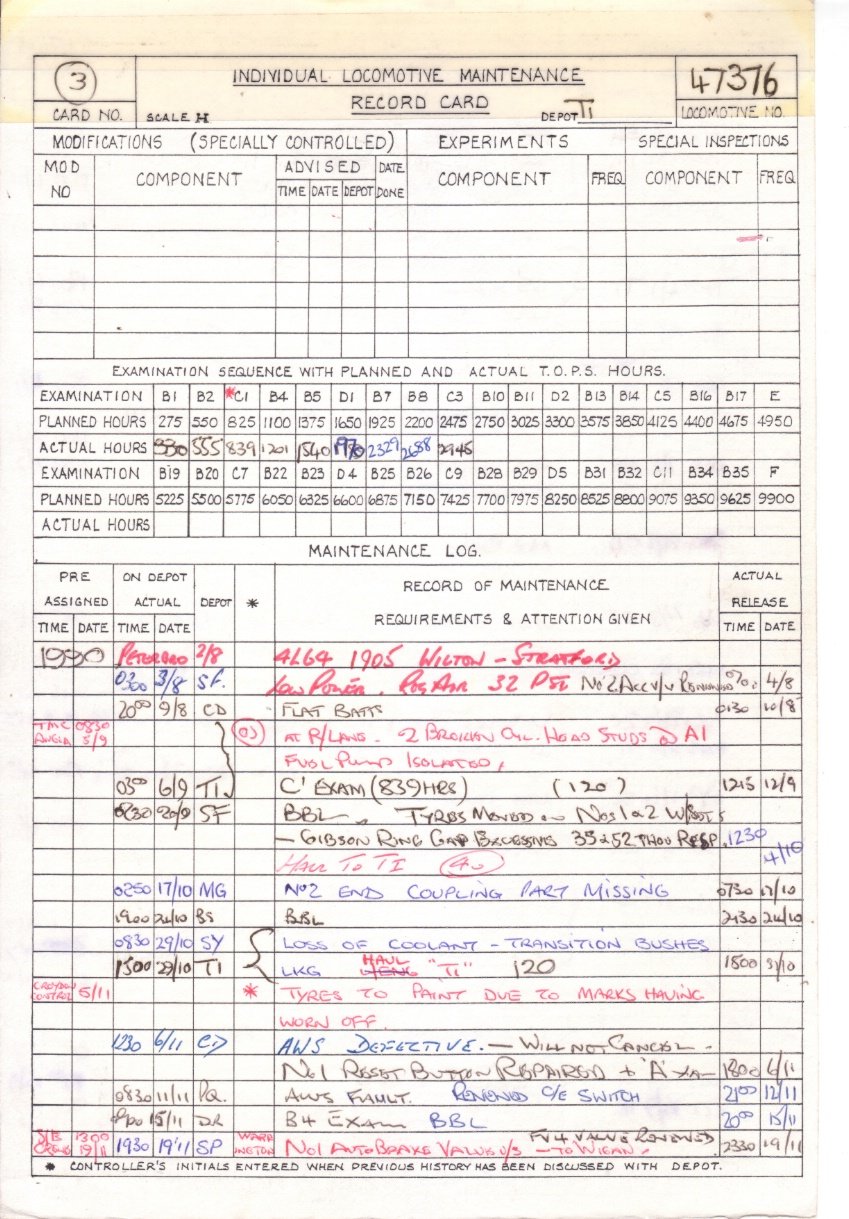 3 INDIVIDUAL LOCOMOTIVE MAINTENANCE 47376
RECORD CARD
CARD NO. SCALE H DEPOT TI LOCOMOTIVE NO.
MODIFICATIONS (SPECIALLY CONTROLLED) EXPERIMENTS SPECIAL INSPECTIONS
MOD NO COMPONENT ADVISED DATE DONE COMPONENT FREQ COMPONENT FREQ
TIME DATE DEPOT
EXAMINATION SEQUENCE WITH PLANNED AND ACTUAL T.O.P.S. HOURS.
EXAMINATION B1 B2 *C1 B4 B5 D1 B7 B8 C3 B10 B11 D2 B13 B14 C5 B16 B17 E
PLANNED HOURS 275 550 825 1100 1375 1650 1925 2200 2475 2750 3025 3300 3575 3850 4125 4400 4675 4950
ACTUAL HOURS 330 555 839 1201 1540 1970 2329 2688 2945
EXAMINATION B19 B20 C7 B22 B23 D4 B25 B26 C9 B28 B29 D5 B31 B32 C11 B34 B35 F
PLANNED HOURS 5225 5500 5775 6050 6325 6600 6875 7150 7425 7700 7975 8250 8525 8800 9075 9350 9625 9900
ACTUAL HOURS
MAINTENANCE LOG.
PRE ASSIGNED ON DEPOT ACTUAL DEPOT * RECORD OF MAINTENANCE REQUIREMENTS & ATTENTION GIVEN ACTUAL RELEASE
TIME DATE TIME DATE TIME DATE
1990 PETERBRO 2/8 4L64 1905 WILTON - STRATFORD
0300 3/8 SF. LOW POWER. REG AIR 32 PSI No 2 ACC v/v RENEWED 4/8
2000 9/8 CD FLAT BATTS 0130 10/8
TMC ANGLIA 0830 5/9 AT R/LANE. 2 BROKEN CYL. HEAD STUDS @ A1
FUEL PUMP ISOLATED,
0300 6/9 TI. C' EXAM (839HRS) (120) 1215 12/9
0230 20/9 SF BBL TYRES MOVED ON Nos 1 & 2 W/SETS
- GIBSON RING GAP EXCESSIVE 35 & 52 THOU RESP. 1230 4/10
HAUL TO TI 40
0250 17/10 MG No2 END COUPLING PART MISSING 0730 17/10
1900 24/10 BS BBL 2130 24/10
0830 29/10 SY LOSS OF COOLANT - TRANSITION BUSHES
1500 29/10 TI LKG HAUL "TI" 120 1500 31/10
CROYDON CONTROL 5/11 * TYRES TO PAINT DUE TO MARKS HAVING
WORN OFF.
1230 6/11 CD AWS DEFECTIVE. - WILL NOT CANCEL -
No1 RESET BUTTON REPAIRED + 'A' XM 1800 6/11
0830 11/11 AWS FAULT. RENEWED C/E SWITCH 2100 12/11
15/11 DR B4 EXAM BBL 2000 15/11
S/E CREWE 1300 19/11 1930 19/11 SP WARRINGTON No1 AUTO BRAKE VALVE U/S - TO WIGAN, FV4 VALVE RENEWED 2330 19/11
* CONTROLLER'S INITIALS ENTERED WHEN PREVIOUS HISTORY HAS BEEN DISCUSSED WITH DEPOT.